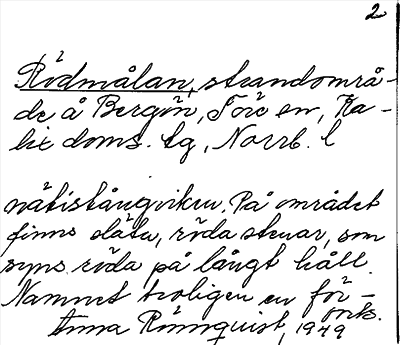 2
Rödmålan, strandområ-
de å Bergön, Töre sn, Ka-
lix doms. tg, Norrb. l
nätistångviken. På området
finns släta, röda stenar, som
syns röda på långt håll.
Namnet troligen en för-
vorks.
Anna Rönnquist, 1949